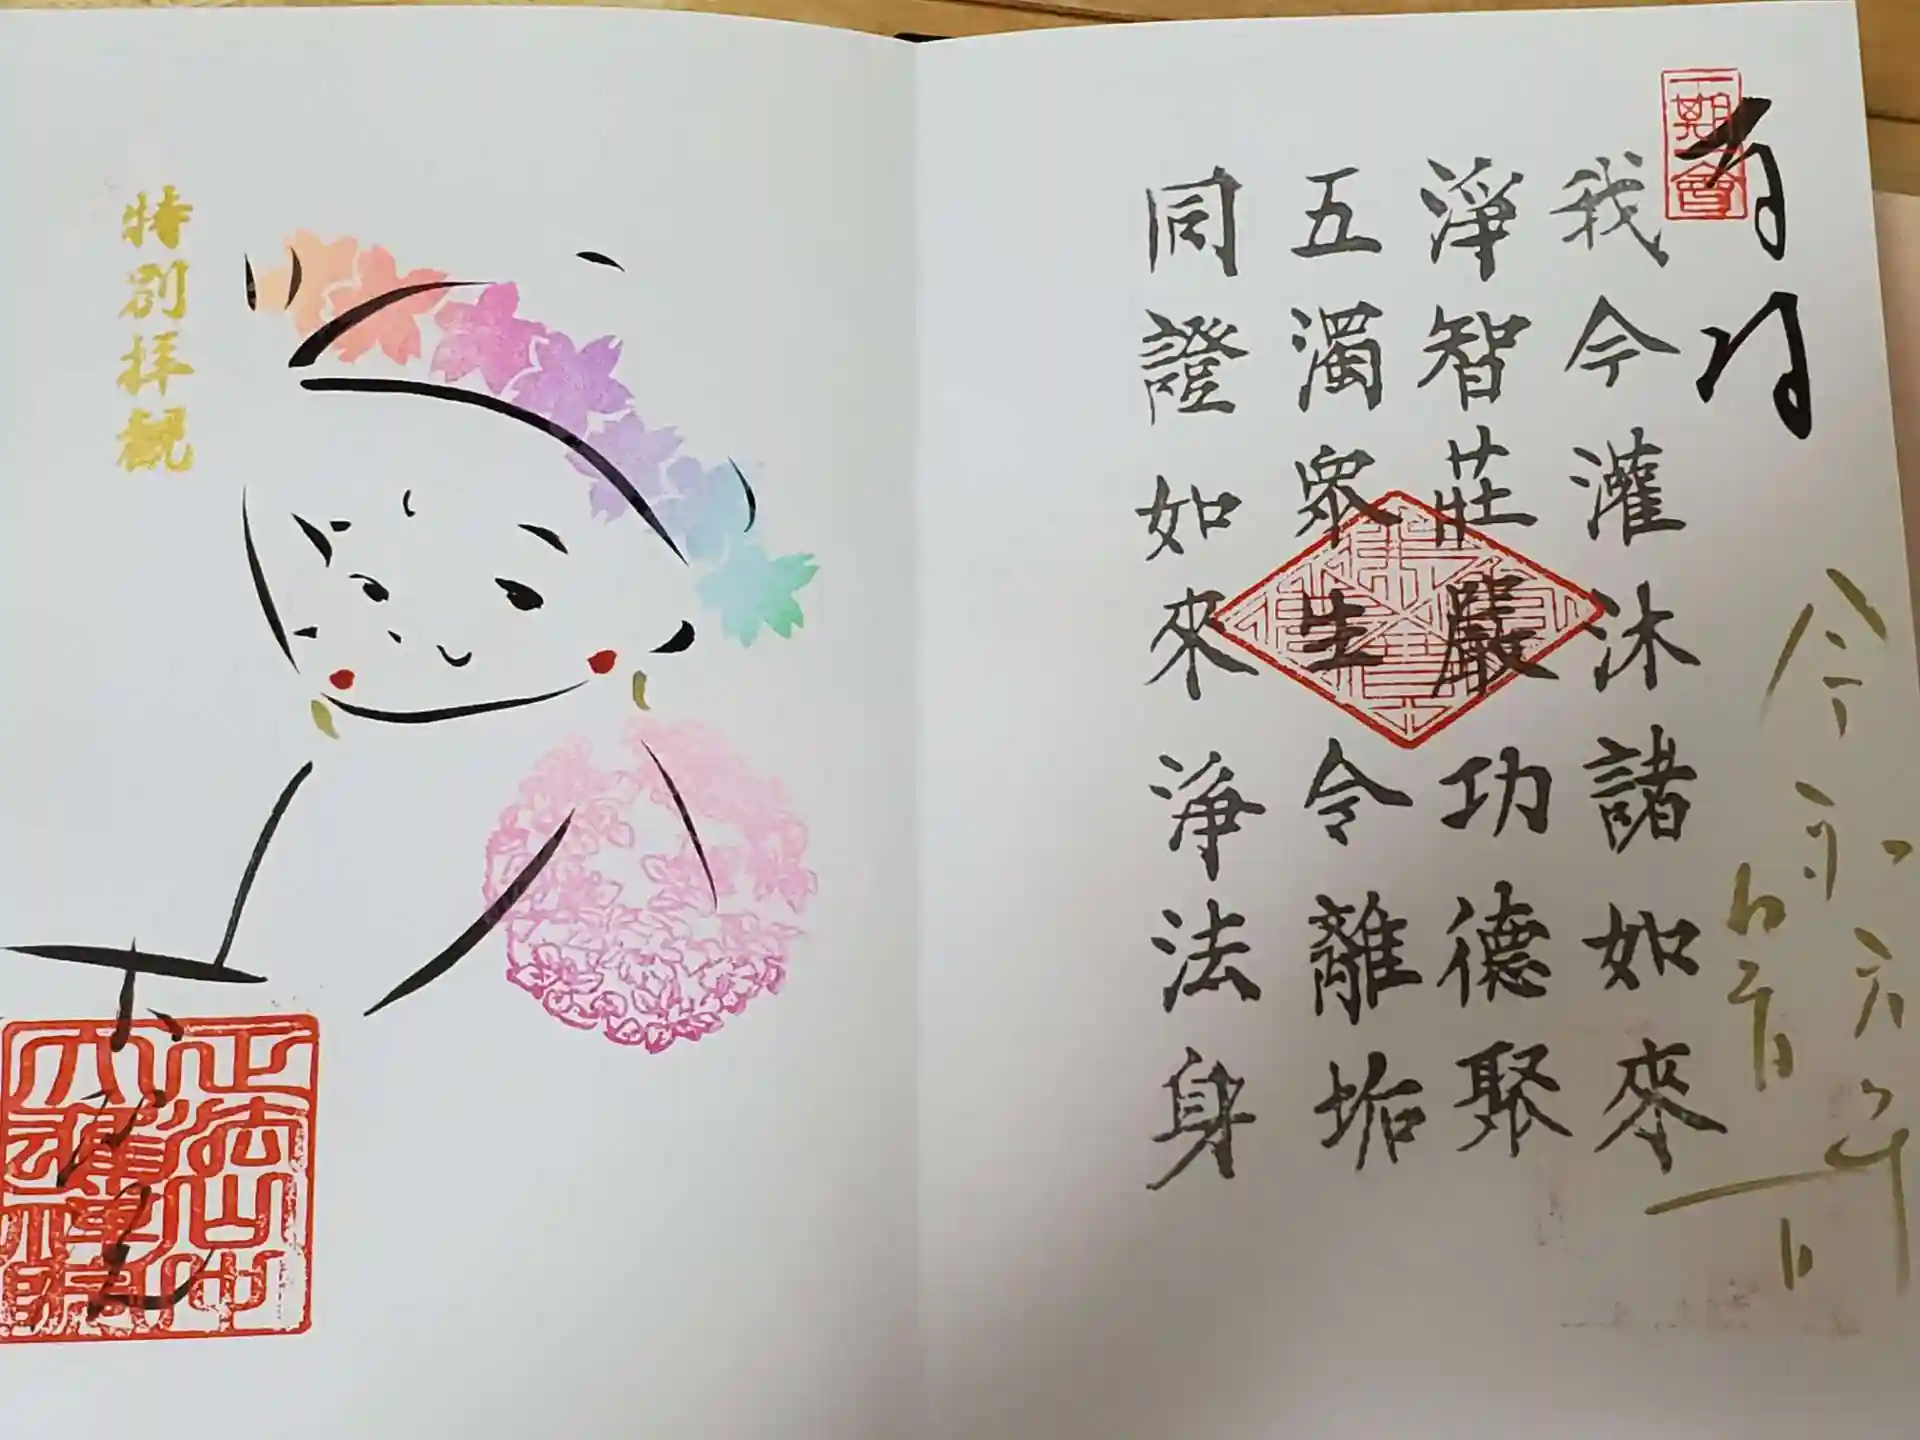 一期一會
奉拝
令和六年
我今灌沐諸如來
淨智莊嚴功德聚
五濁眾生令離垢
同證如來淨法身
特別拝観
正法山中
大雄禪院